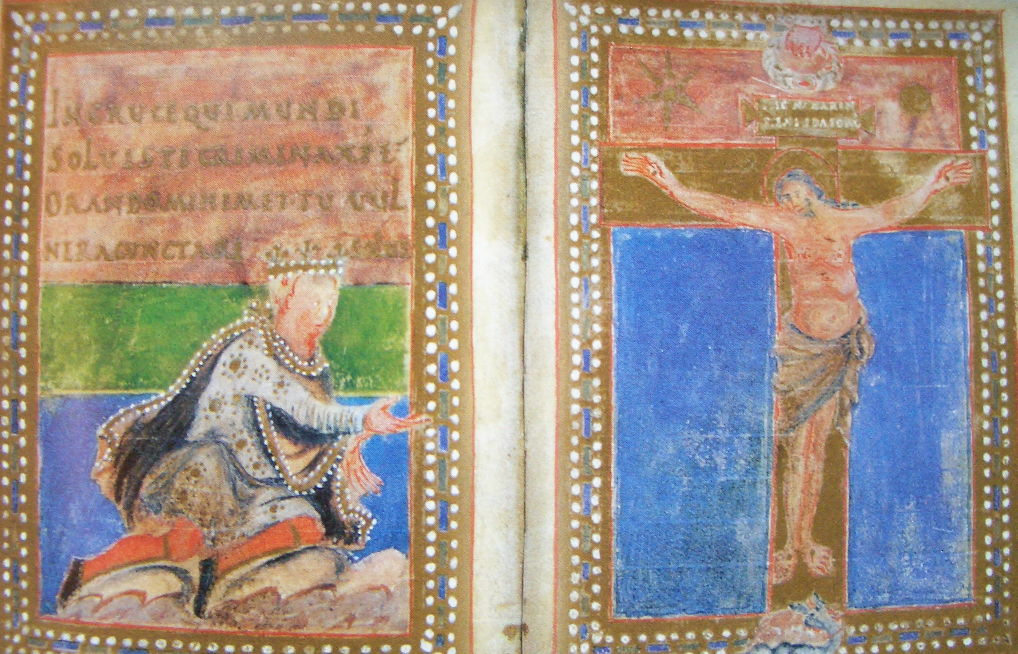 INCRUCEQUIMUNDI
SOLUISTICRIMINAXPE
ORANDOMIHIMETTU UUL
NERACUNCTA